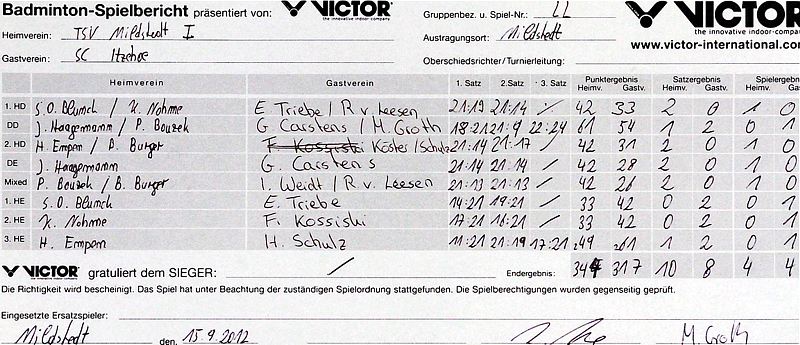 Badminton-Spielbericht präsentiert von: VICTOR the innovative indoor-company Gruppenbez. u. Spiel-Nr.: LL VICTOR the innovative indoor-com
Heimverein: TSV Mildstedt I Austragungsort: Mildstedt www.victor-international.com
Gastverein: SC Itzehoe Oberschiedsrichter/Turnierleitung:
Heimverein Gastverein 1. Satz 2.Satz 3. Satz Punktergebnis Heimv. Gastv. Satzergebnis Heimv. Gastv. Spielerge Heimv. Gast
1. HD S.O. Blunck / K. Nohme E. Triebe / R v. Leesen 21:19 21:14 ⁒ 42 33 2 0 1 0
DD J. Haagemann / P. Bouzek G. Carstens / M. Groth 18:21 21:9 22:24 61 54 1 2 0 1
2. HD H. Empen / B. Burger F. Kossiski Köster / Schulz 21:14 21:17 / 42 31 2 0 1 0
DE J. Haagemann G. Carstens 21:14 21:14 / 42 28 2 0 1 0
Mixed P. Bouzek / B. Burger I. Weidt / R. v. Leesen 21:13 21:13 / 42 26 2 0 1 0
1. HE S.O. Blunck E. Triebe 14:21 19:21 / 33 42 0 2 0 1
2. HE K. Nohme F. Kossiski 17:21 16:21 / 33 42 0 2 0 1
3. HE H. Empen H. Schulz 11:21 21:19 17:21 49 61 1 2 0 1
VICTOR gratuliert dem SIEGER: / Endergebnis: 344 317 10 8 4 4
Die Richtigkeit wird bescheinigt. Das Spiel hat unter Beachtung der zuständigen Spielordnung stattgefunden. Die Spielberechtigungen wurden gegenseitig geprüft.
Eingesetzte Ersatzspieler:
Mildstedt den, 15.9.2012 M. Groth